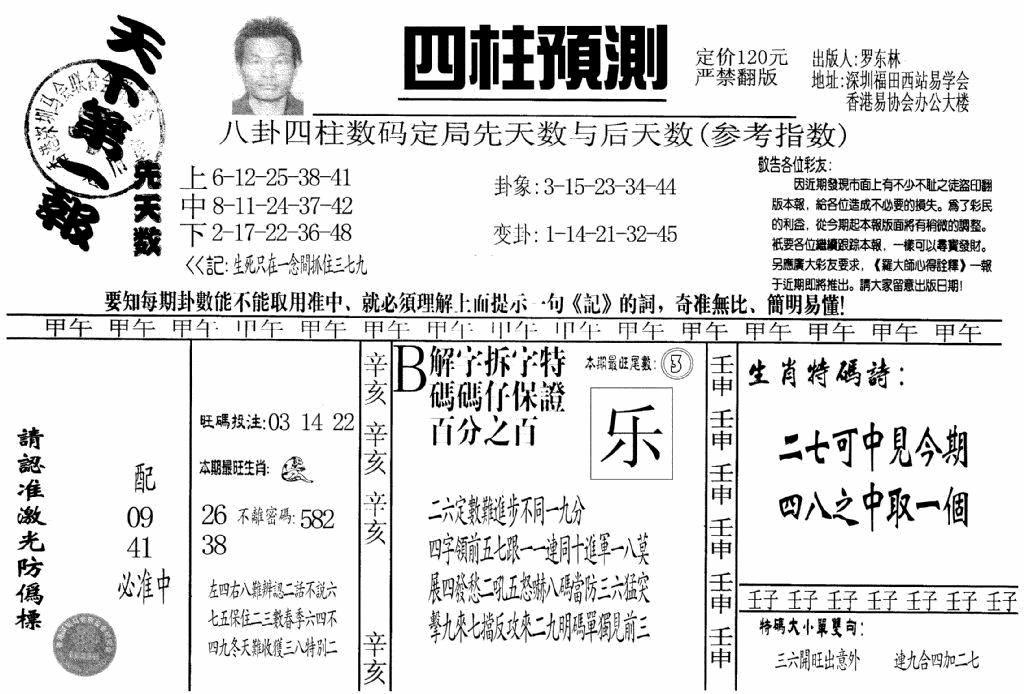 天下第一報
先天数
四柱預測
定价120元
严禁翻版
出版人:罗东林
地址:深圳福田西站易学会
香港易协会办公大楼
八卦四柱数码定局先天数与后天数(参考指数)
上 6-12-25-38-41
中 8-11-24-37-42
下 2-17-22-36-48
<<記:生死只在一念間抓住三七九
卦象:3-15-23-34-44
变卦:1-14-21-32-45
敬告各位彩友:
因近期發現市面上有不少不耻之徒盜印翻
版本報，給各位造成不必要的損失。爲了彩民
的利益，從今期起本報版面將有稍微的調整。
祇要各位繼續跟踪本報，一樣可以尋寶發財。
另應廣大彩友要求，《羅大師心得詮釋》一報
于近期即將推出。請大家留意出版日期!
要知每期卦數能不能取用准中、就必須理解上面提示一句《記》的詞，奇准無比、簡明易懂!
甲午 甲午 甲午 甲午 甲午 甲午 甲午 甲午 甲午 甲午 甲午 甲午 甲午 甲午 甲午
請認准激光防僞標
配
09
41
必准中
旺碼投注:03 14 22
本期最旺生肖:
26 不離密碼:582
38
左四右八難辨認二話不說六
七五保住二三數春季六四不
四九冬天難收獲三八特別二
辛亥 辛亥 辛亥 辛亥
B 解字拆字特
碼碼仔保證
百分之百
本期最旺尾數: 3
乐
二六定數難進步不同一九分
四字領前五七跟一一連同十進軍一八莫
展四發愁二吼五怒嚇八碼當防三六猛突
擊九來七擋反攻來二九明碼單獨見前三
壬申 壬申 壬申 壬申 壬申 壬申
生肖特碼詩:
二七可中見今期
四八之中取一個
壬子 壬子 壬子 壬子 壬子 壬子 壬子
特碼大小單雙向:
三六開旺出意外 連九合四加二七